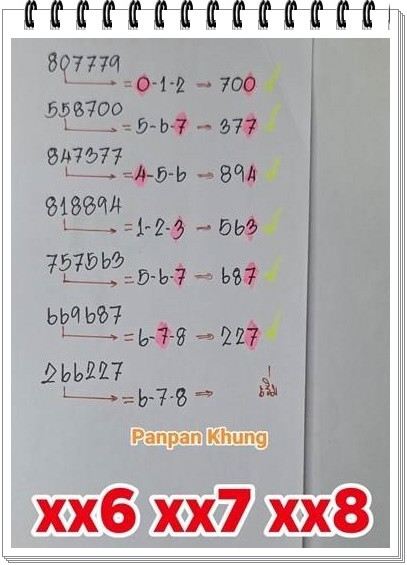 807779
= 0-1-2 → 700
558700
= 5-6-7 → 377
847377
= 4-5-6 → 894
818894
= 1-2-3 → 563
757563
= 5-6-7 → 687
669687
= 6-7-8 → 227
266227
= 6-7-8 ⇒
Panpan Khung
xx6 xx7 xx8